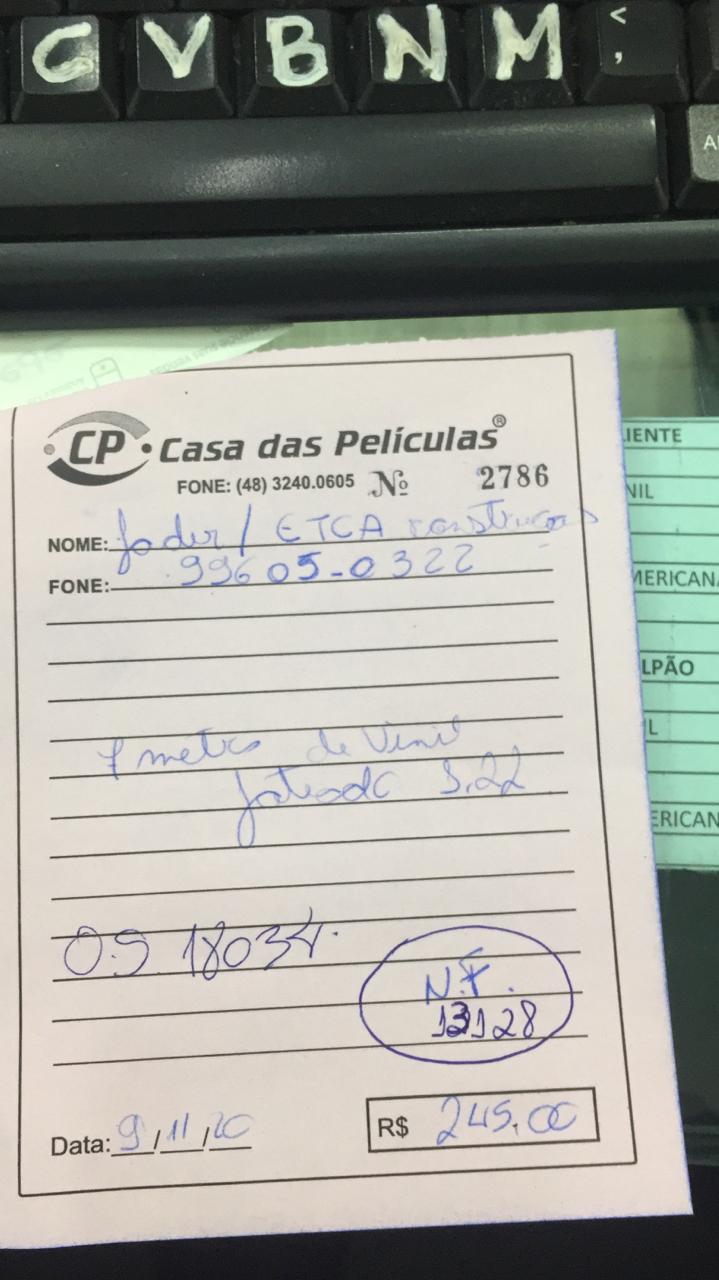 C V B N M < ,
CP • Casa das Películas®
FONE: (48) 3240.0605 Nº 2786
NOME: Jader / ETCA construções
FONE: 99605-0322
7 metro de Vinil
Jateado 1.22
O.S 18034.
N.F.
13128
Data: 9/11/20
R$ 245,00
IENTE
NIL
MERICANA
LPÃO
L
ERICAN